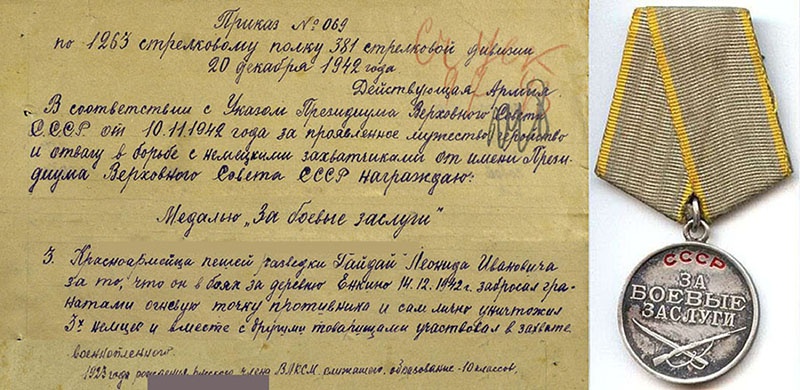 Приказ № 069
по 1263 стрелковому полку 381 стрелковой дивизии
20 декабря 1942 года
Действующая Армия.
В соответствии с Указом Президиума Верховного Совета
СССР от 10.11.1942 года за проявленное мужество
и отвагу в борьбе с немецкими захватчиками от имени Прези-
диума Верховного Совета СССР награждаю:
Медалью „За боевые заслуги"
3. Красноармейца пешей разведки Гайдай Леонида Ивановича
за то, что он в боях за деревню Енкино 14.12.1942 г. забросал гра-
натами огневую точку противника и сам лично уничтожил
3х немцев и вместе с другими товарищами участвовал в захвате
военнопленного.
1923 года рождения, русского, члена ВЛКСМ, служащего, образование - 10 классов,
СССР
ЗА
БОЕВЫЕ
ЗАСЛУГИ